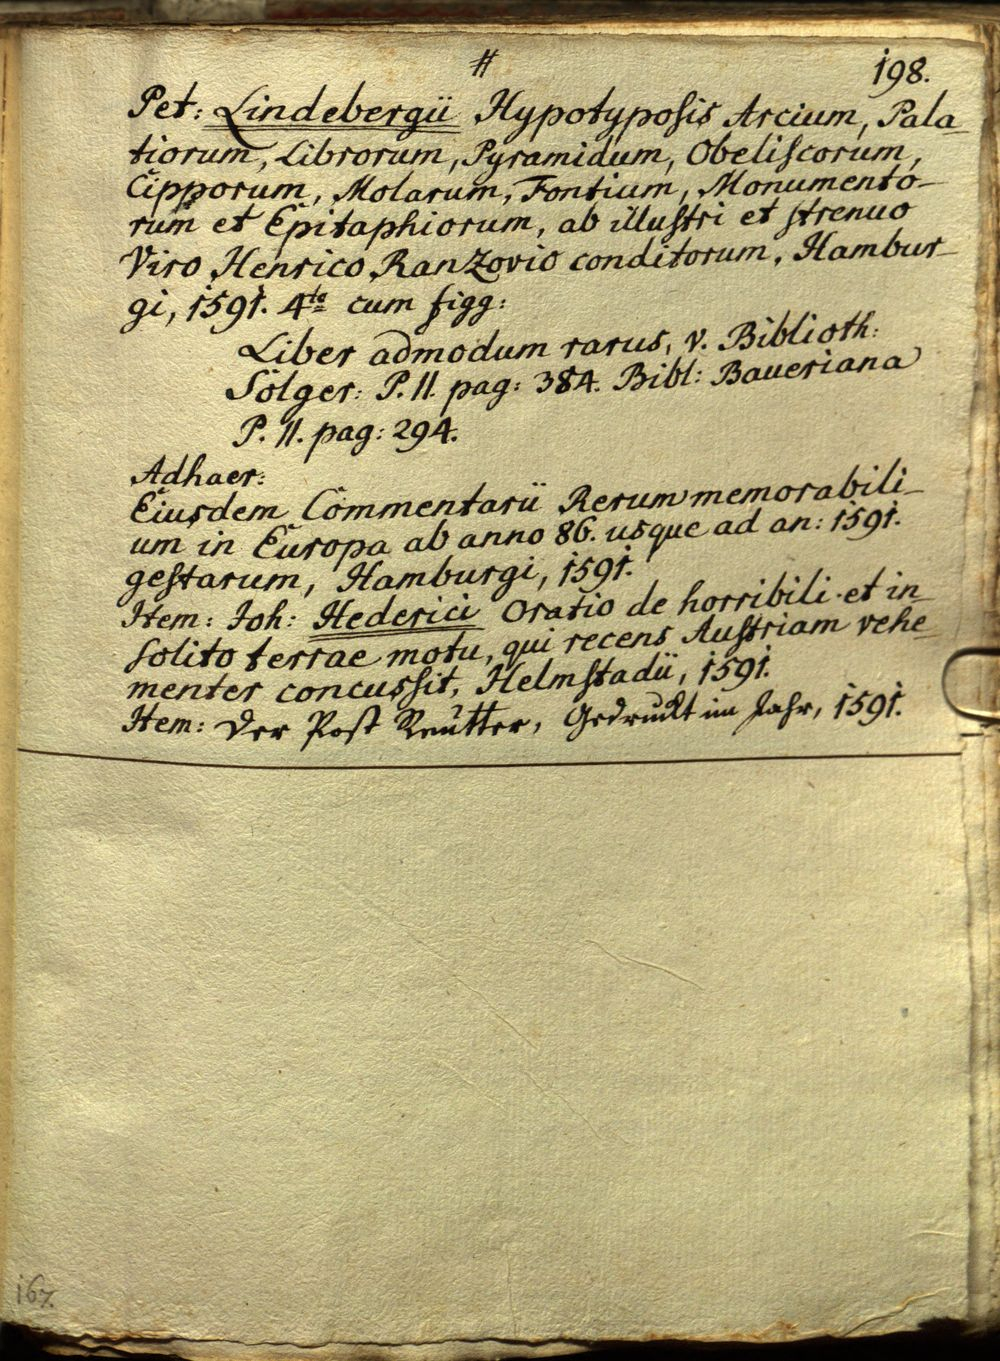 #
198.
Pet: Lindebergii Hypotyposis Arcium, Pala
tiorum, Librorum, Pyramidum, Obeliscorum,
Cipporum, Molarum, Fontium, Monumento-
rum et Epitaphiorum, ab illustri et strenuo
Viro Henrico Ranzovio conditorum, Hambur-
gi, 1591. 4to cum figg:
Liber admodum rarus, v. Biblioth:
Solger: P. II. pag: 384. Bibl: Baueriana
P. II. pag: 294.
Adhaer:
Eiusdem Commentarii Rerum memorabili-
um in Europa ab anno 86. usque ad an: 1591.
gestarum, Hamburgi, 1591.
Item: Joh: Hederici Oratio de horribili et in
solito terrae motu, qui recens Austriam vehe
menter concussit, Helmstadii, 1591.
Item: Der Post Reütter, Gedruckt im Jahr, 1591.
167.